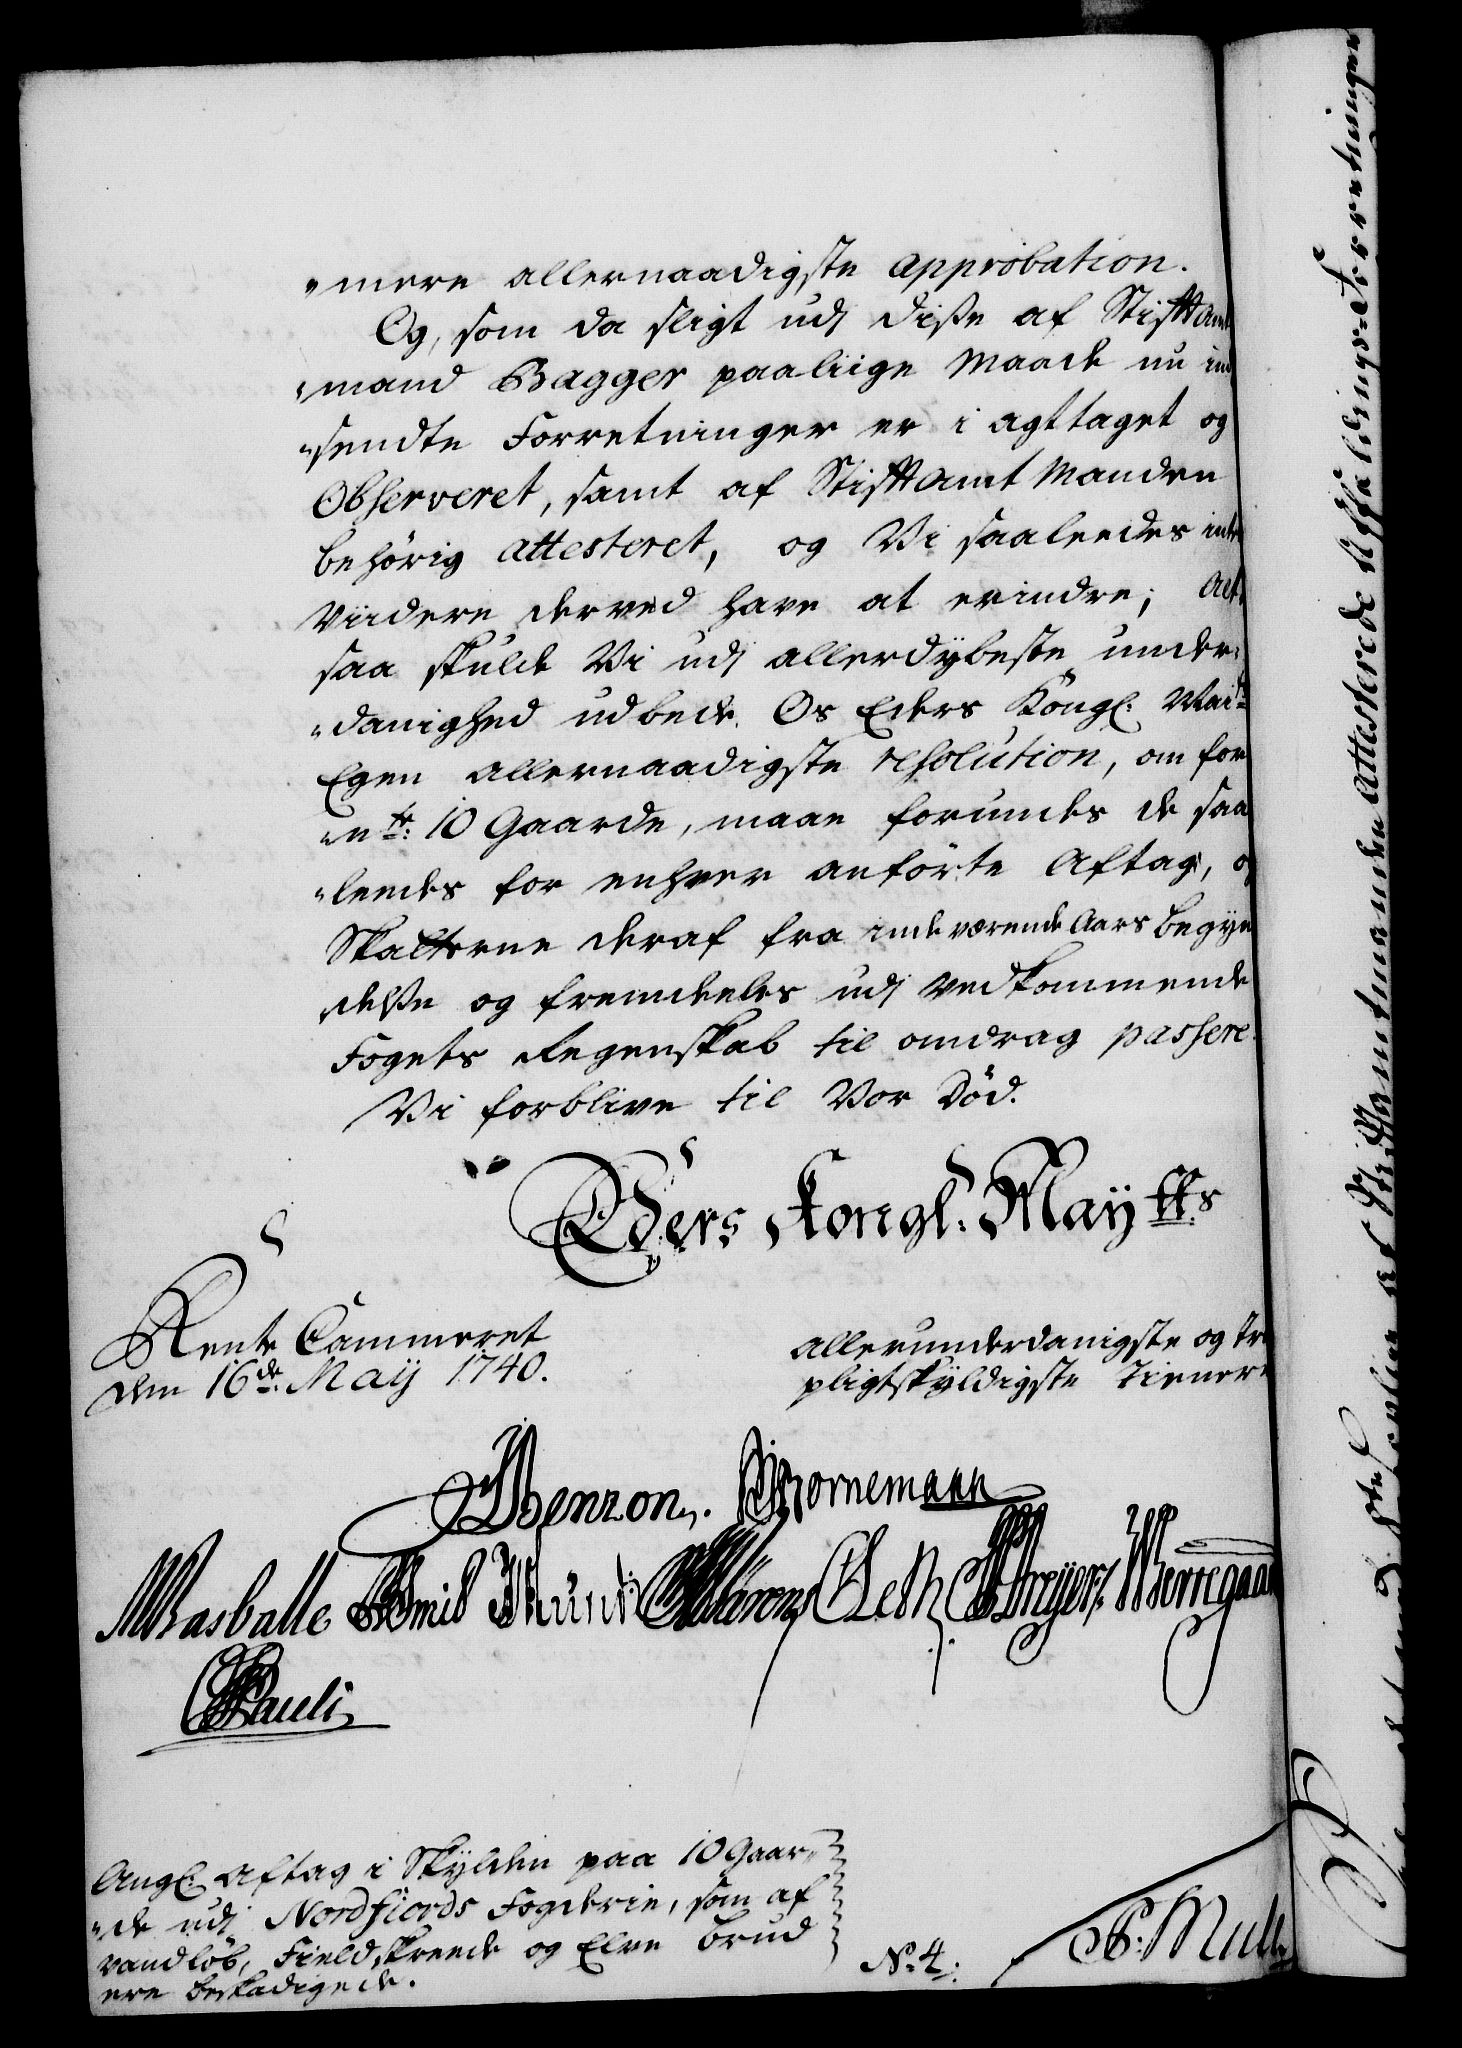 "mere allernaadigste approbation.
Og, som da sligt udj disse af Stifftamt
"mand Bagger paaliige Maade nu ind
"sendte Forretninger er i agttaget og
Observeret, samt af Stifftamt Manden
behörig attesteret, og Vi saaleedes inte
Viidere derved have at erindre; Alt
saa skulde Vi udj allerdÿbeste under
"danighed udbede Os Eders Kongl: Maits
Egen allernaadigste resolution, om for
"nte: 10 Gaarde, maae forundes de saa
"leedes for enhver anförte Aftag, og
Skatterne deraf fra inde værende Aars begyn
delse og fremdeeles udj vedkommende
Fogets Regenskab til omdrag passere.
Vi forblive til Vor Död.
Eders Kongl: Maÿtts
Rente Cammeret
den 16de: Maÿ 1740.
allerunderdanigste og tro
pligtskÿldigste Tienere
Benzon. Bornemann
Basballe Smid Munk Oeth Dreyer
Pauli
Angl: Aftag i Skÿlden paa 10 Gaar
"de udj Nordfiords Fogderie, som af
vandlöb, Field,skreede og Elve brud
ere beskadigede.
No: 4:
Mull
attesterede Affældings-Forretninger